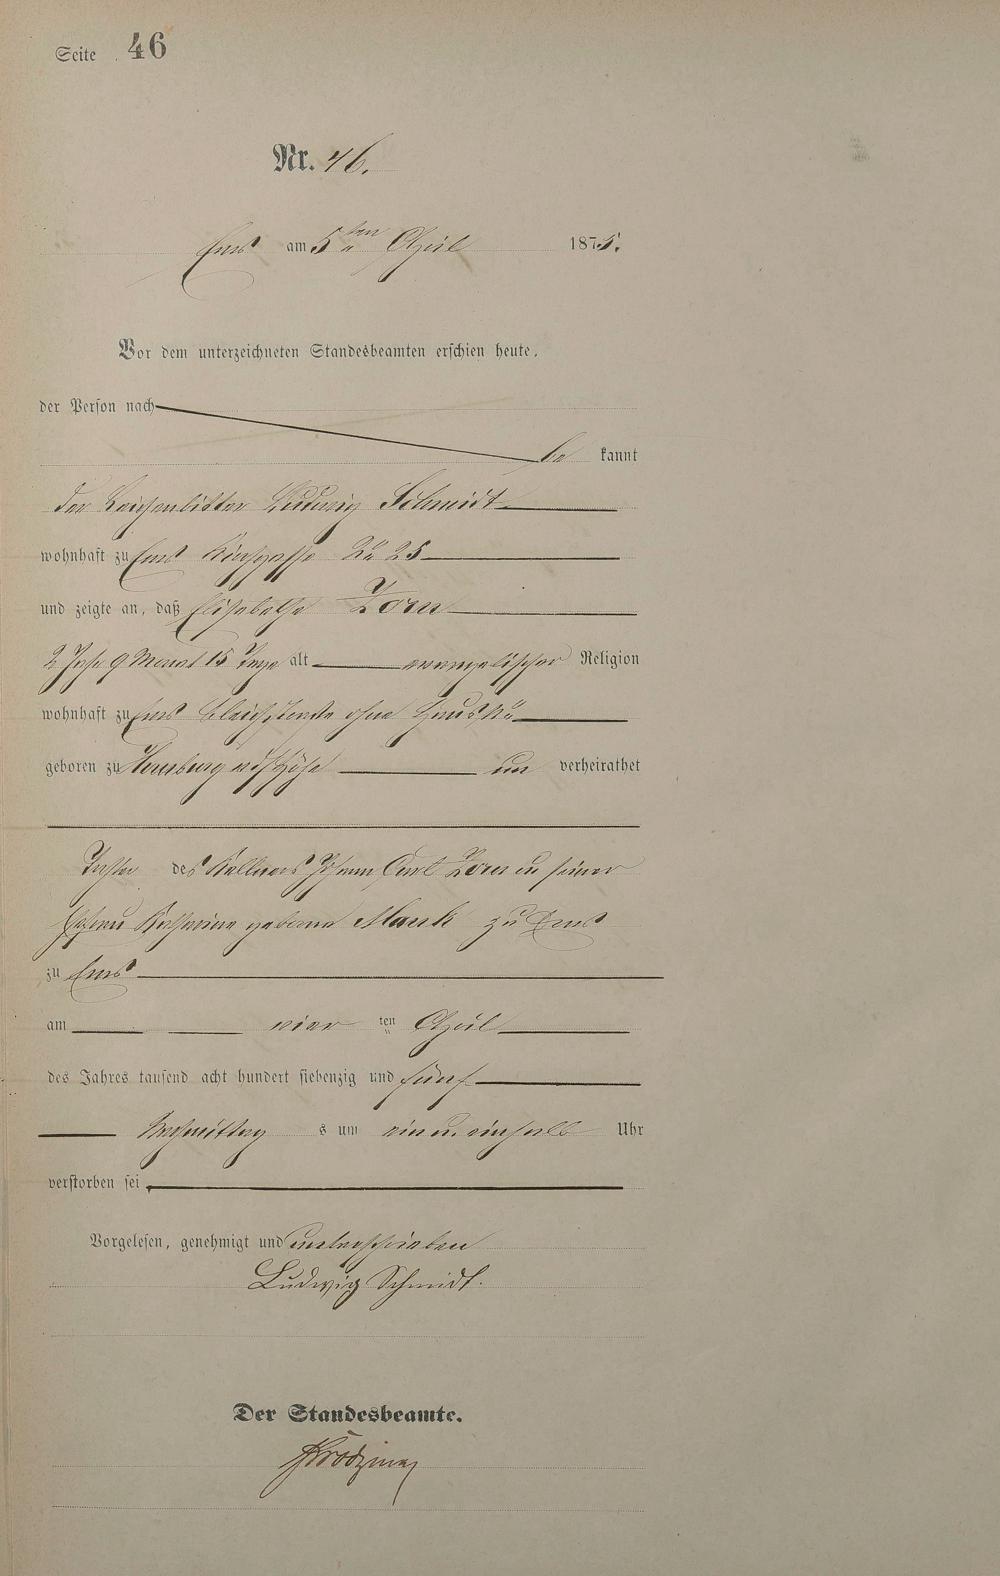 Seite 46
Nr. 46.
Ems am 5ten April 1875.
Vor dem unterzeichneten Standesbeamten erschien heute,
der Person nach
be kannt
der Leichenbitter Ludwig Schmidt
wohnhaft zu Ems Kirchgasse No 25
und zeigte an, daß Elisabetha Zorn
2 Jahr 9 Monat 15 Tage alt evangelischer Religion
wohnhaft zu Ems Bleichstraße ohne Haus No
geboren zu Homburg vdHöhe un verheirathet
Tochter des Kellners Johann Carl Zorn u seiner
Ehefrau Katharine geborene Mank zu Ems
zu Ems
am vier ten April
des Jahres tausend acht hundert siebenzig und fünf
Nachmittag s um ein u. einhalb Uhr
verstorben sei
Vorgelesen, genehmigt und unterschrieben
Ludwig Schmidt.
Der Standesbeamte.